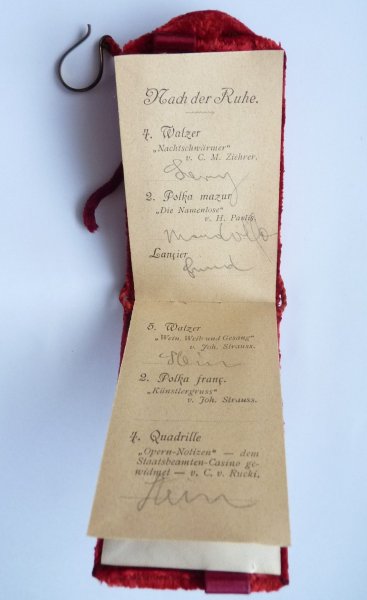 Nach der Ruhe.
4. Walzer
„Nachtschwärmer"
v. C. M. Ziehrer.
2. Polka mazur
„Die Namenlose"
v. H. Pavlis.
Lançier
5. Walzer
„Wein, Weib und Gesang"
v. Joh. Strauss.
2. Polka franç.
„Künstlergruss"
v. Joh. Strauss.
4. Quadrille
„Opern-Notizen" — dem
Staatsbeamten-Casino ge-
widmet — v. C. v. Rucki.